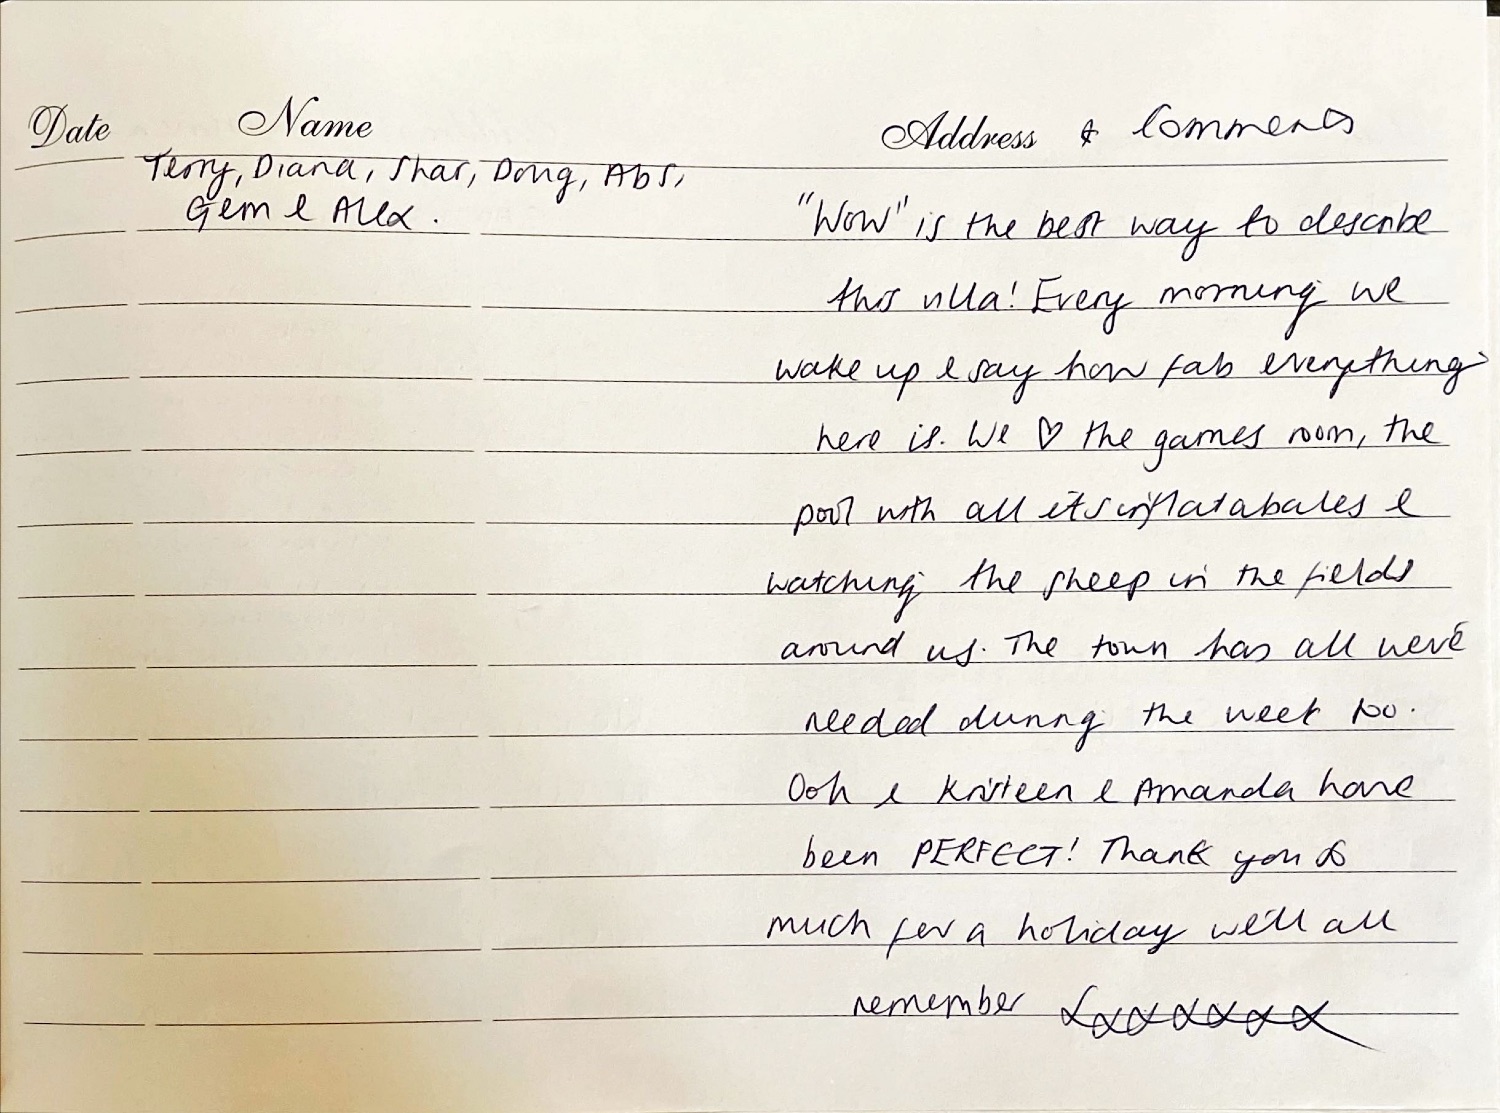 Date Name Address & Comments
Terry, Diana, Shar, Doug, Abs,
Gem & Alex.
"Wow" is the best way to describe
this villa! Every morning we
wake up & say how fab everything
here is. We ♡ the games room, the
pool with all its inflatabales &
watching the sheep in the fields
around us. The town has all we've
needed during the week too.
Ooh & Kristeen & Amanda have
been PERFECT! Thank you so
much for a holiday we'll all
remember xxxxxxx